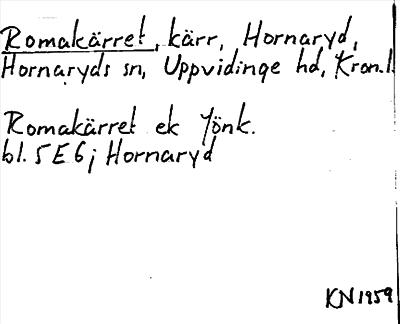 Romakärret, kärr, Hornaryd,
Hornaryds sn, Uppvidinge hd, Kron.l.
Romakärret ek Jönk.
bl. 5E6j Hornaryd
KN 1959